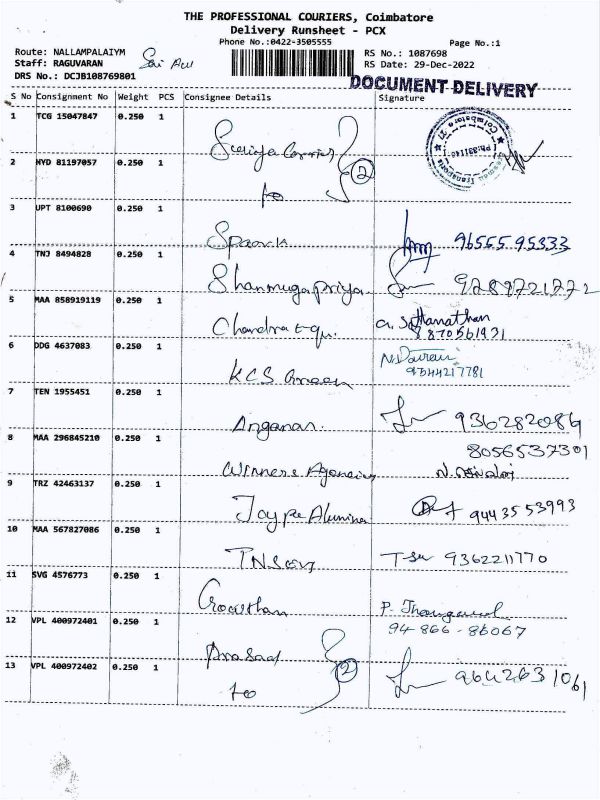 THE PROFESSIONAL COURIERS, Coimbatore
Delivery Runsheet - PCX
Phone No.:0422-3505555
Page No.:1
Route: NALLAMPALAIYM
RS No.: 1087698
Staff: RAGUVARAN
RS Date: 29-Dec-2022
DRS No.: DCJB108769801
DOCUMENT DELIVERY
S No Consignment No Weight PCS Consignee Details Signature
1 TCG 15047847 0.250 1
Coimbatore
2 HYD 81197057 0.250 1 to 2
3 UPT 8100690 0.250 1 96555 95333
4 TNJ 8494828 0.250 1 Shanmugapriya 9289721272
5 MAA 858919119 0.250 1 Chandra a. Sattanathan
8870561971
6 DDG 4637083 0.250 1 KCS
9344217781
7 TEN 1955451 0.250 1 Anganan. 936282086
8 MAA 296845210 0.250 1 Winners Agencies 8056537301
9 TRZ 42463137 0.250 1 Jaype Alumina 9443553993
10 MAA 567827086 0.250 1 9362211770
11 SVG 4576773 0.250 1 Gowtham
12 VPL 400972401 0.250 1 Prasad 94 866-86067
13 VPL 400972402 0.250 1 to 2